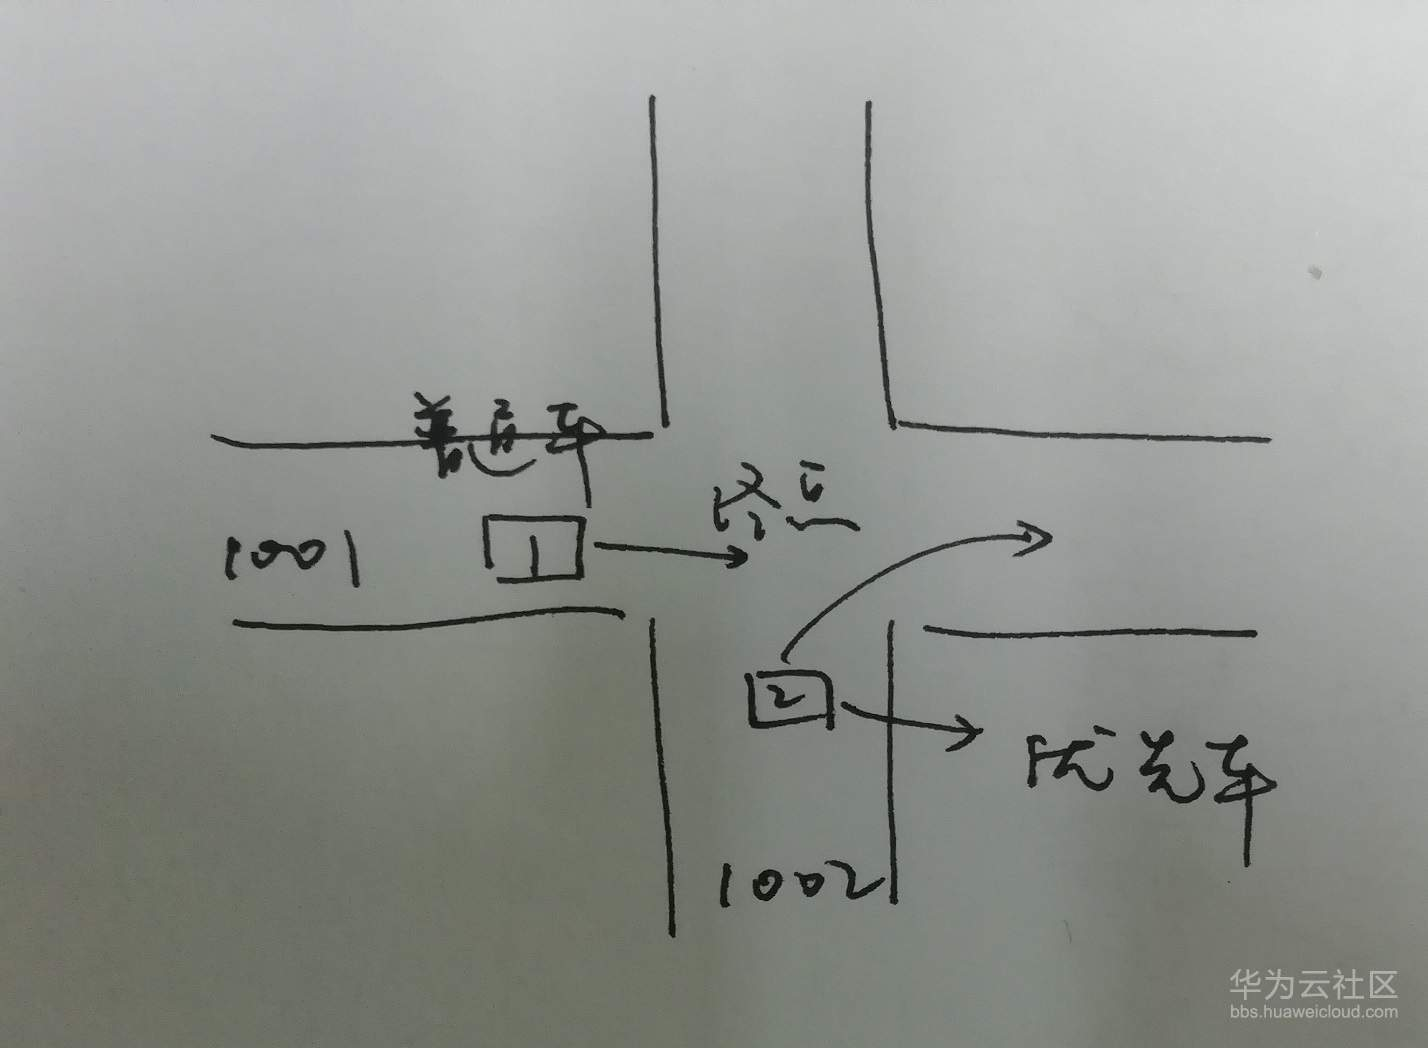 普通车
终点
1001
1
2
优先车
1002
华为云社区
bbs.huaweicloud.com